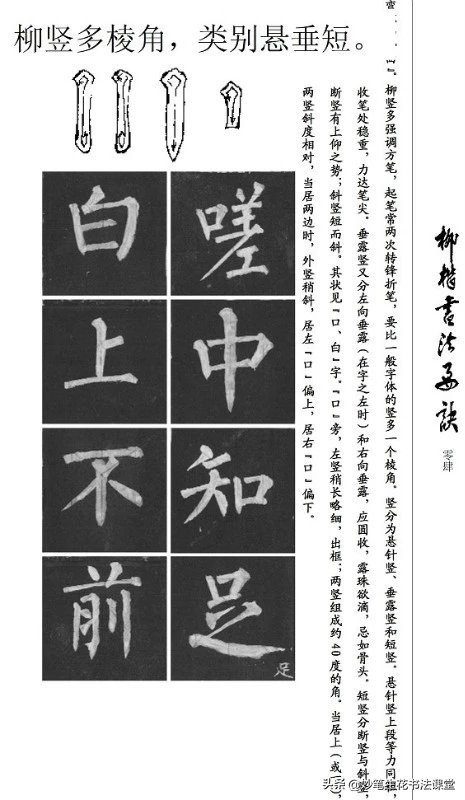 柳竖多棱角，类别悬垂短。
柳竖多强调方笔，起笔常两次转锋折笔，要比一般字体的竖多一个棱角。竖分为悬针竖、垂露竖和短竖。悬针竖上段等力同粗，
收笔处稳重，力达笔尖。垂露竖又分左向垂露（在字之左时）和右向垂露，应圆收，露珠欲滴，忌如骨头。短竖分断竖与斜竖，
断竖有上仰之势；斜竖短而斜。其状见『口、白』字。『口』旁，左竖稍长略细，出框；两竖组成约40度的角。当居上（或
两竖斜度相对，当居两边时，外竖稍斜，居左『口』偏上，居右『口』偏下。
白 嗟
上 中
不 知
前 足
足
柳楷书法要诀
零肆
头条 @妙笔生花书法课堂